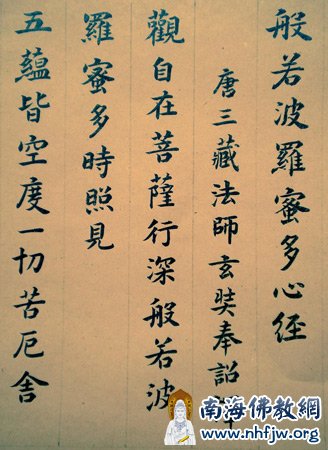 般若波羅蜜多心經
唐三藏法師玄奘奉詔譯
觀自在菩薩行深般若波
羅蜜多時照見
五蘊皆空度一切苦厄舍
南海佛教網
www.nhfjw.org